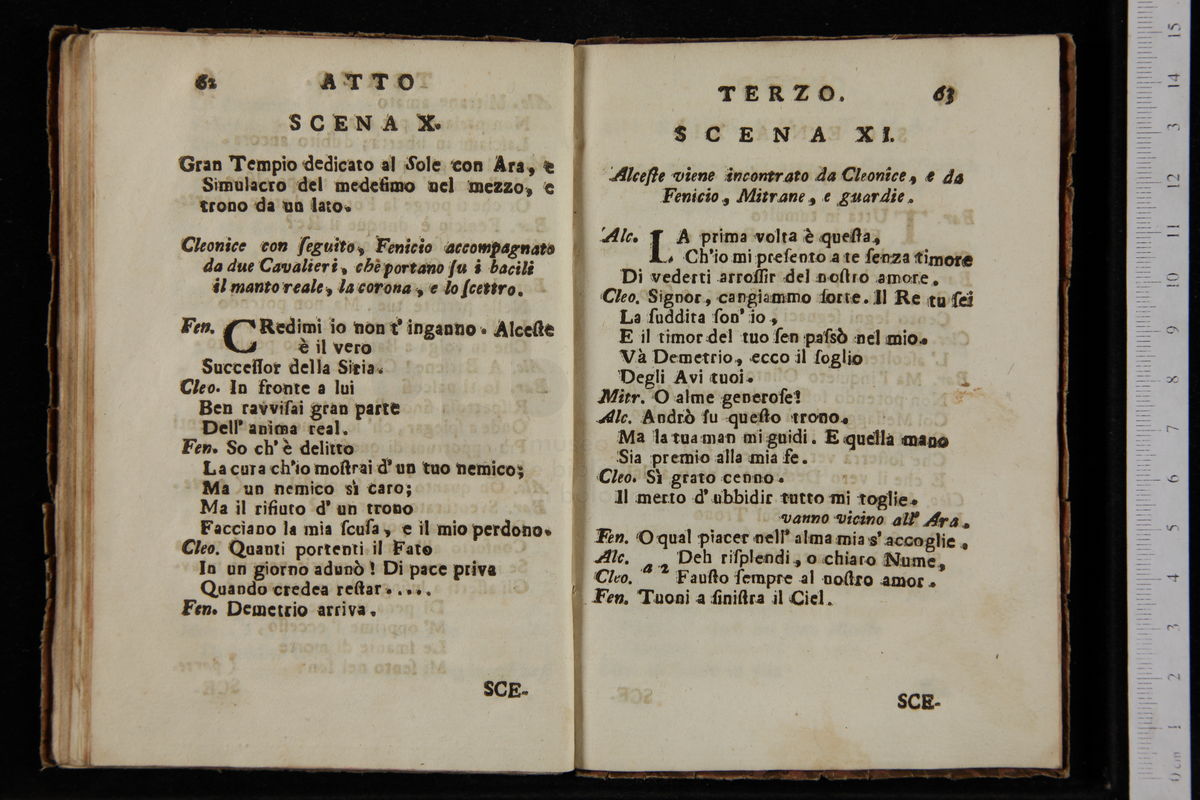 62 ATTO
SCENA X.
Gran Tempio dedicato al Sole con Ara, e
Simulacro del medeſimo nel mezzo, e
trono da un lato.
Cleonice con ſeguito, Fenicio accompagnato
da due Cavalieri, chè portano ſu i bacili
il manto reale, la corona, e lo ſcettro.
Fen. CRedimi io non t' inganno. Alceſte
è il vero
Succeſſor della Siria.
Cleo. In fronte a lui
Ben ravviſai gran parte
Dell' anima real.
Fen. So ch' è delitto
La cura ch'io moſtrai d' un tuo nemico;
Ma un nemico sì caro;
Ma il rifiuto d' un trono
Facciano la mia ſcuſa, e il mio perdono.
Cleo. Quanti portenti il Fato
In un giorno adunò! Di pace priva
Quando credea reſtar.....
Fen. Demetrio arriva.
SCE-
TERZO. 63
SCENA XI.
Alceſte viene incontrato da Cleonice, e da
Fenicio, Mitrane, e guardie.
Alc. LA prima volta è queſta,
Ch'io mi preſento a te ſenza timore
Di vederti arroſſir del noſtro amore.
Cleo. Signor, cangiammo ſorte. Il Re tu ſei
La ſuddita ſon' io,
E il timor del tuo ſen paſsò nel mio.
Và Demetrio, ecco il ſoglio
Degli Avi tuoi.
Mitr. O alme generoſe!
Alc. Andrò ſu queſto trono.
Ma la tua man mi guidi. E quella mano
Sia premio alla mia fe.
Cleo. Sì grato cenno.
Il merto d' ubbidir tutto mi toglie.
vanno vicino all' Ara.
Fen. O qual piacer nell' alma mia s' accoglie.
Alc. a 2 Deh riſplendi, o chiaro Nume,
Cleo. Fauſto ſempre al noſtro amor.
Fen. Tuoni a ſiniſtra il Ciel.
SCE-
0 cm 1 2 3 4 5 6 7 8 9 10 11 12 13 14 15